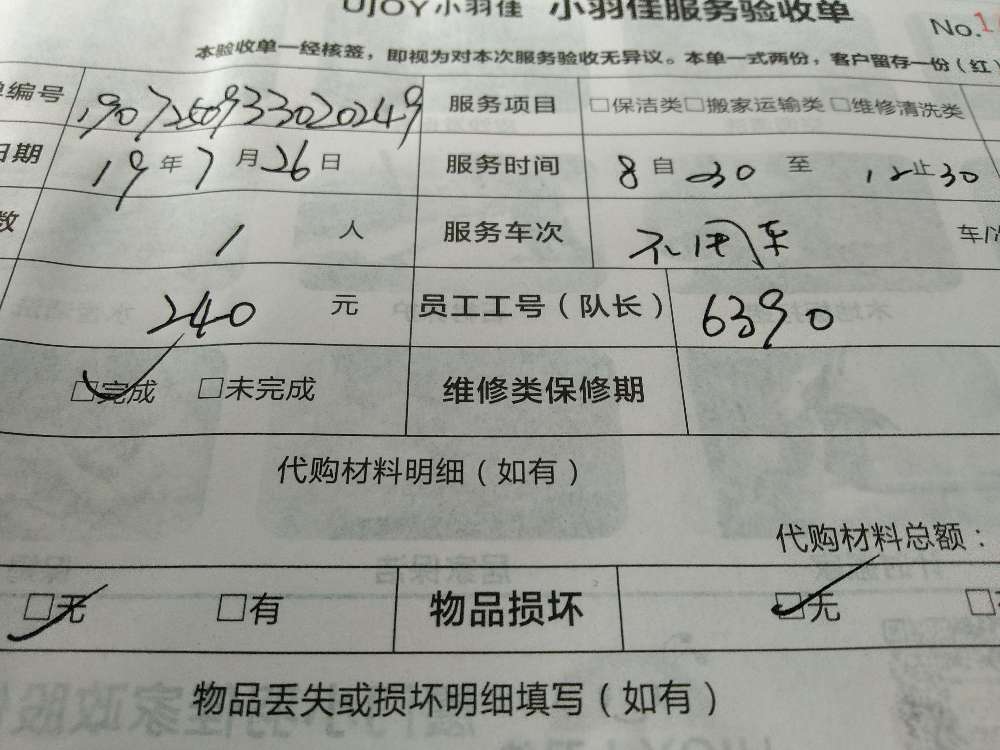 UJOY小羽佳 小羽佳服务验收单
No.1
本验收单一经核签，即视为对本次服务验收无异议。本单一式两份，客户留存一份（红）
编号 1907250933020249 服务项目 □保洁类□搬家运输类□维修清洗类
日期 19年7月26日 服务时间 8自30至12止30
数 1人 服务车次 不用车 车/
240元 员工工号（队长） 6390
□完成 □未完成 维修类保修期
代购材料明细（如有）
代购材料总额：
□无 □有 物品损坏 □无 □
物品丢失或损坏明细填写（如有）